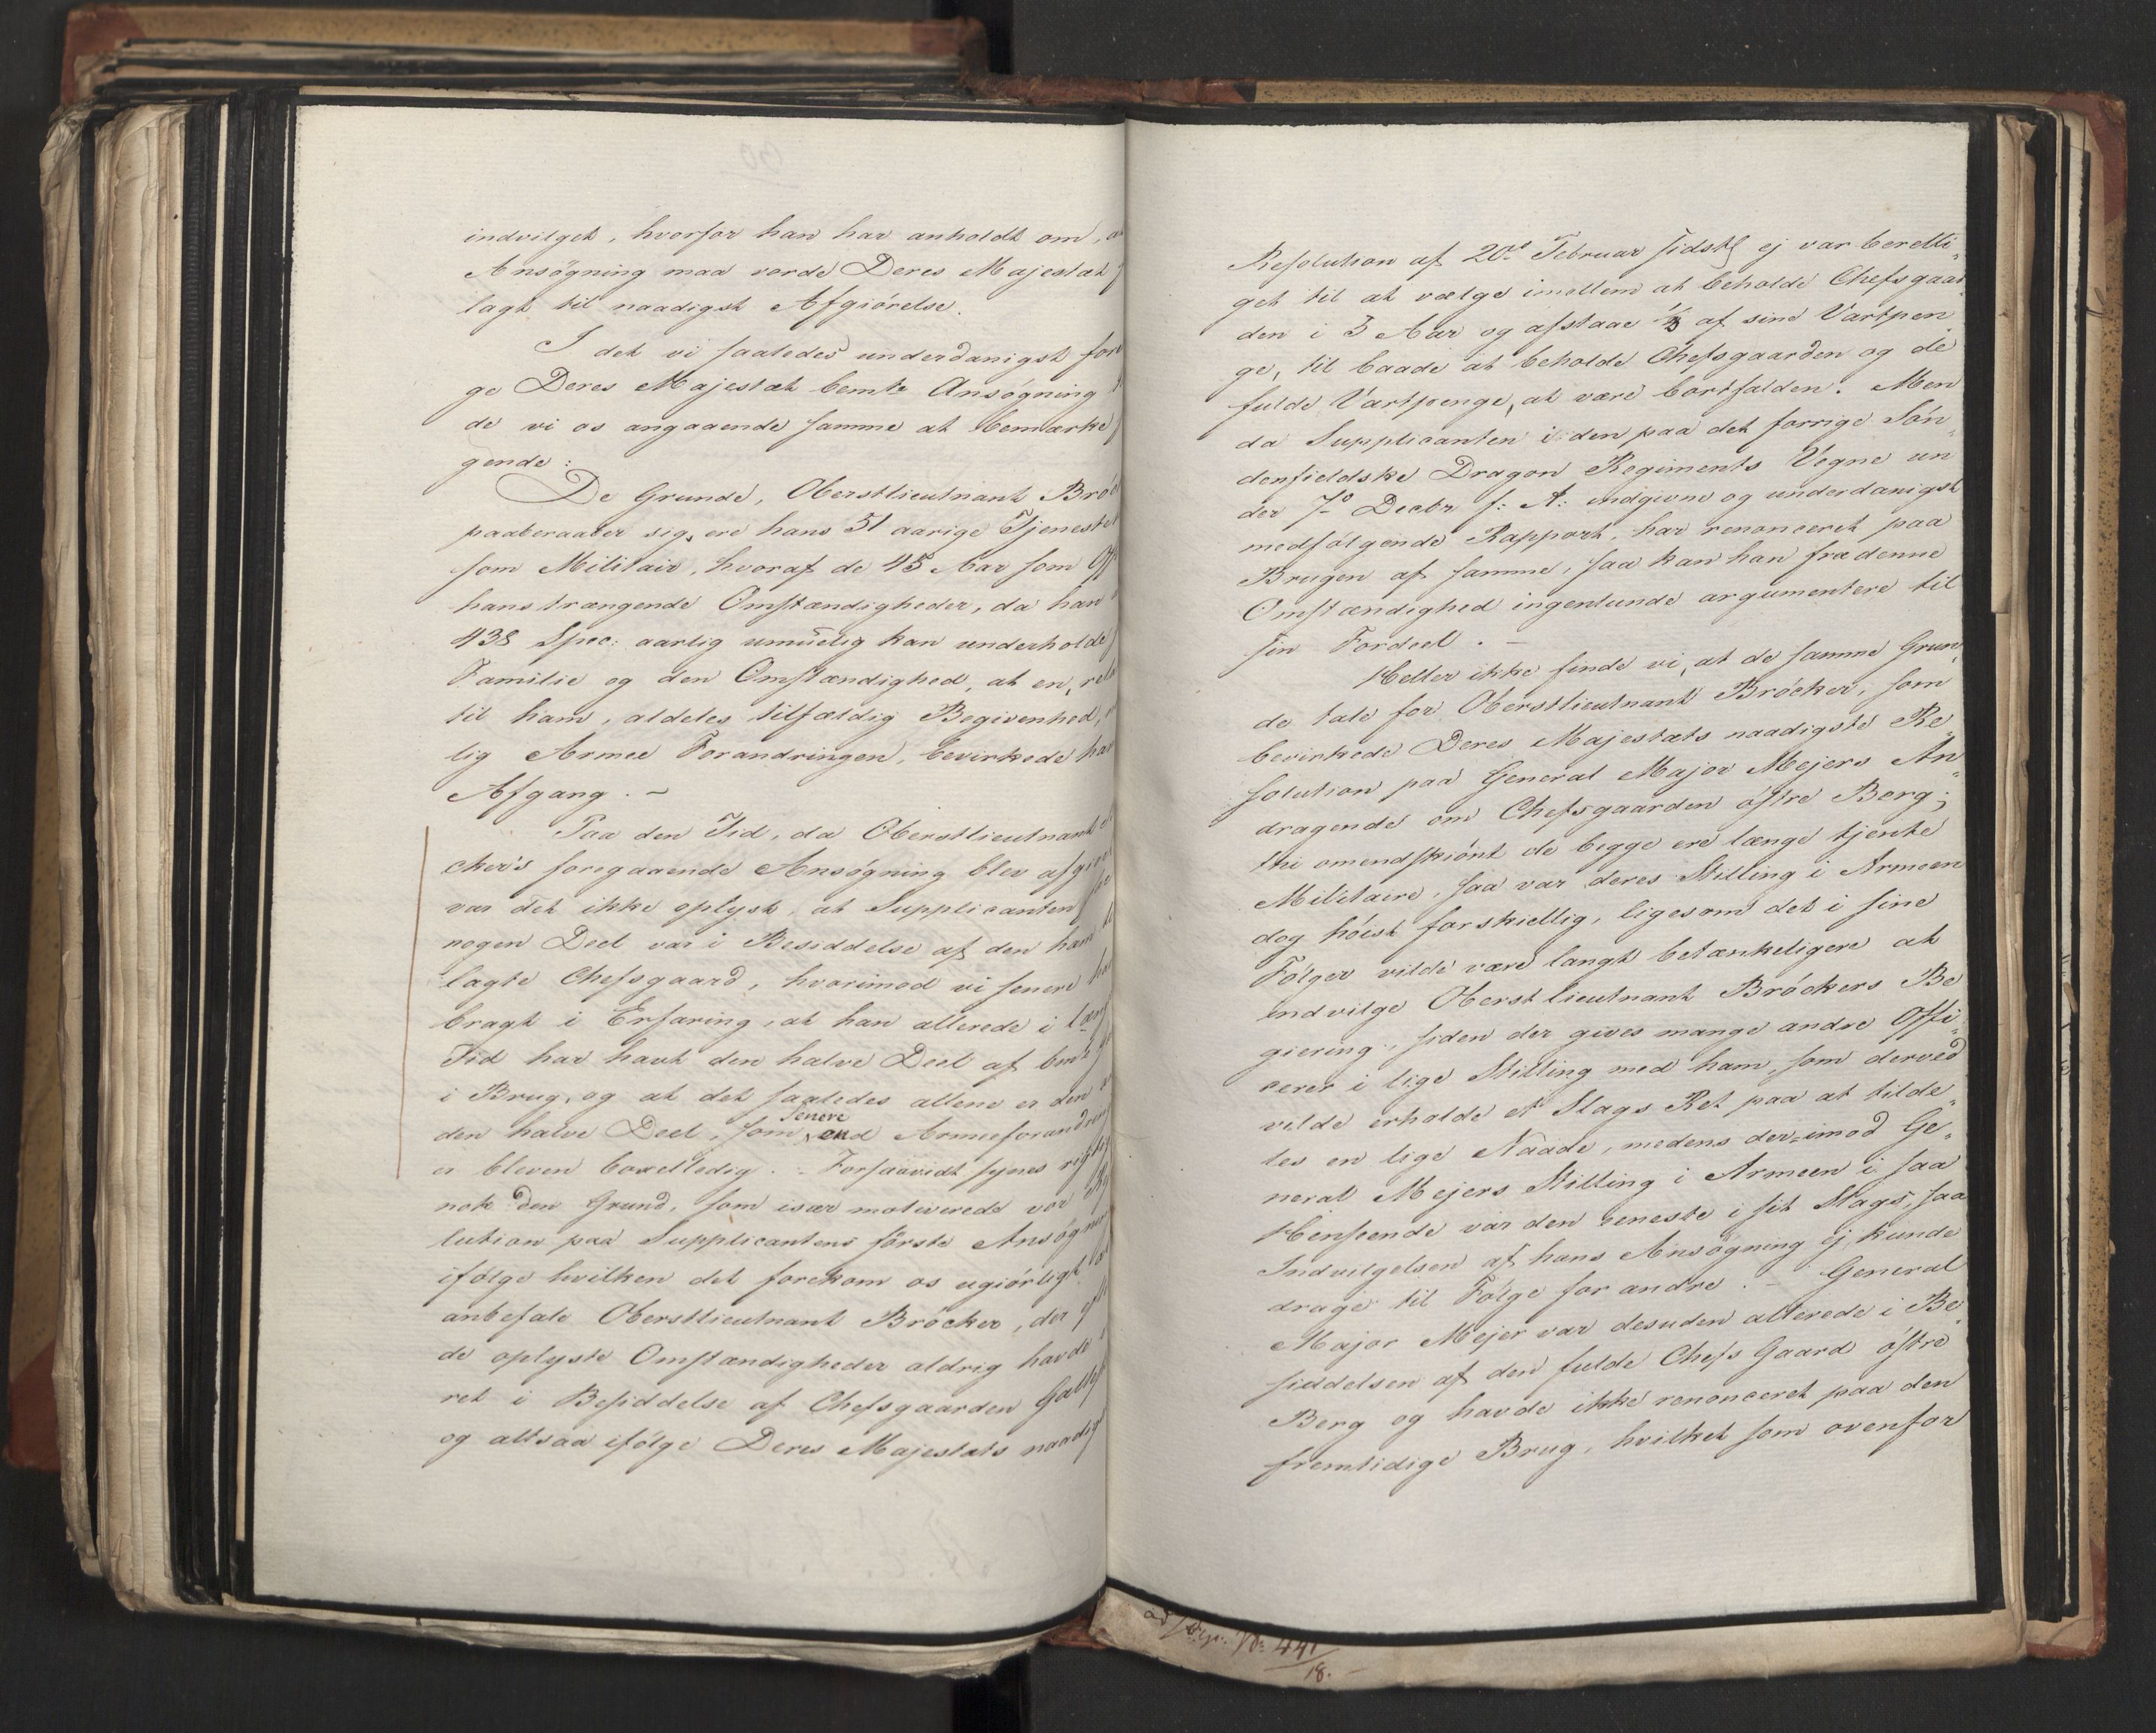 indvilget, hvorfor han har anholdt om, a
Ansøgning maa vorde Deres Majestæt
lagt til naadigst Afgiørelse.
I det vi saaledes underdanigst fore
ge Deres Majestæt bemte Ansøgning
de vi os angaaende samme at bemærke
gende:
De Grunde, Oberstlieutnant Brøc
paaberaaber sig, ere hans 51 aarige Tjeneste
som Militair, hvoraf de 45 Aar som Off
hans trængende Omstændigheder, da han
438 Spec: aarlig umuelig kan underholde
Familie og den Omstændighed, at en, rela
til ham, aldeles tilfældig Begivenhed,
lig Armee Forandringen, bevirkede han
Afgang. -
Paa den Tid, da Oberstlieutnant
cker's foregaaende Ansøgning blev afgiort
var det ikke oplyst, at Supplicanten for
nogen Deel var i Besiddelse af den ham
lagte Chefsgaard, hvorimod vi senere ha
bragt i Erfaring, at han allerede i læng
Tid har havt den halve Deel af bemte
i Brug, og at det saaledes allene er den
den halve Deel, som senere end Armeeforandring
er bleven boxelledig. - Forsaavidt synes rigtig
nok den Grund, som især motiverede vor
lution paa Supplicantens første Ansøgni
ifølge hvilken det forekom os ugiørligt
anbefale Oberstlieutnant Brøcker, der eft
de oplyste Omstændigheder aldrig havde
ret i Besiddelse af Chefsgaarden
og altsaa ifølge Deres Majestæts naadig
Resolution af 20de Februar sidstl ej var beretti„
get til at vælge imellem at beholde Chefsgaar„
den i 3 Aar og afstaae 1/3 af sine Vartpen„
ge, til baade at beholde Chefsgaarden og de
fulde Vartpenge, at være bortfalden. Men
da Supplicanten i den paa det forrige Søn„
denfieldske Dragon Regiments Vegne un
der 7de Decbr f: A: indgivne og underdanigst
medfølgende Rapport, har renonceret paa
Brugen af samme, saa kan han fra denne
Omstændighed ingenlunde argumentere til
sin Fordeel. -
Heller ikke finde vi, at de samme Grun„
de tale for Oberstlieutnant Brøcker, som
bevirkede Deres Majestæts naadigste Re„
solution paa General Major Mejers An„
dragende om Chefsgaarden østre Berg;
thi omendskiønt de begge ere længe tjente
Militaire, saa var deres Stilling i Armeen
dog høist forskiellig, ligesom det i sine
Følger vilde være langt betænkeligere at
indvilge Oberstlieutnant Brøckers Be
giering, siden der gives mange andre Offi„
cerer i lige Stilling med ham, som derved
vilde erholde et Slags Ret paa at tilde„
les en lige Naade, medens der imod Ge„
neral Mejers Stilling i Armeen i saa
Henseende var den eneste i sit Slags, saa
Indvilgelsen af hans Ansøgning ej kunde
drage til Følge for andre. - General
Major Mejer var desuden allerede i Be„
siddelsen af den fulde Chefs Gaard østre
Berg og havde ikke renonceret paa den
fremtidige Brug, hvilket som ovenfor
No: 441/18. -